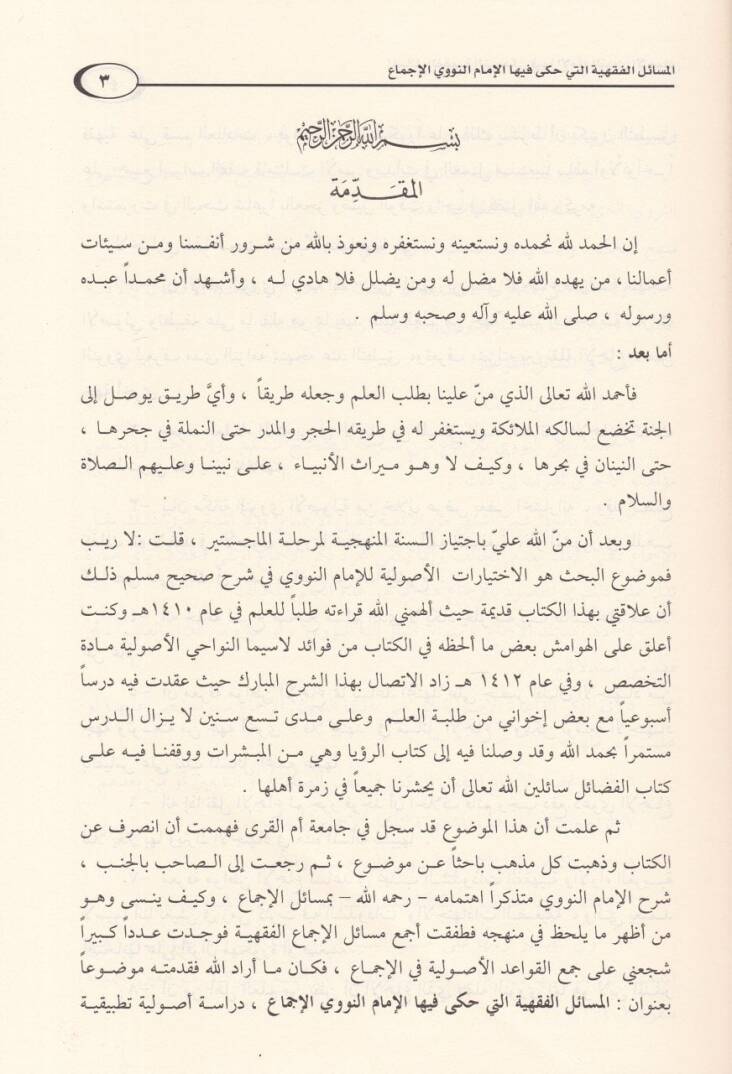 المسائل الفقهية التي حكى فيها الإمام النووي الإجماع
٣
بسم الله الرحمن الرحيم
المقدِّمَة
إن الحمد لله نحمده ونستعينه ونستغفره ونعوذ بالله من شرور أنفسنا ومن سيئات
أعمالنا ، من يهده الله فلا مضل له ومن يضلل فلا هادي له ، وأشهد أن محمداً عبده
ورسوله ، صلى الله عليه وآله وصحبه وسلم .
أما بعد :
فأحمد الله تعالى الذي منّ علينا بطلب العلم وجعله طريقاً ، وأيَّ طريق يوصل إلى
الجنة تخضع لسالكه الملائكة ويستغفر له في طريقه الحجر والمدر حتى النملة في جحرها ،
حتى النينان في بحرها ، وكيف لا وهو ميراث الأنبياء ، على نبينا وعليهم الصلاة
والسلام .
وبعد أن منّ الله عليّ باجتياز السنة المنهجية لمرحلة الماجستير ، قلت :لا ريب
فموضوع البحث هو الاختيارات الأصولية للإمام النووي في شرح صحيح مسلم ذلك
أن علاقتي بهذا الكتاب قديمة حيث ألهمني الله قراءته طلباً للعلم في عام ١٤١٠هـ وكنت
أعلق على الهوامش بعض ما ألحظه في الكتاب من فوائد لاسيما النواحي الأصولية مادة
التخصص ، وفي عام ١٤١٢ هـ زاد الاتصال بهذا الشرح المبارك حيث عقدت فيه درساً
أسبوعياً مع بعض إخواني من طلبة العلم وعلى مدى تسع سنين لا يزال الدرس
مستمراً بحمد الله وقد وصلنا فيه إلى كتاب الرؤيا وهي من المبشرات ووقفنا فيه على
كتاب الفضائل سائلين الله تعالى أن يحشرنا جميعاً في زمرة أهلها .
ثم علمت أن هذا الموضوع قد سجل في جامعة أم القرى فهممت أن انصرف عن
الكتاب وذهبت كل مذهب باحثاً عن موضوع ، ثم رجعت إلى الصاحب بالجنب ،
شرح الإمام النووي متذكراً اهتمامه – رحمه الله – بمسائل الإجماع ، وكيف ينسى وهو
من أظهر ما يلحظ في منهجه فطفقت أجمع مسائل الإجماع الفقهية فوجدت عدداً كبيراً
شجعني على جمع القواعد الأصولية في الإجماع ، فكان ما أراد الله فقدمته موضوعاً
بعنوان : المسائل الفقهية التي حكى فيها الإمام النووي الإجماع ، دراسة أصولية تطبيقية